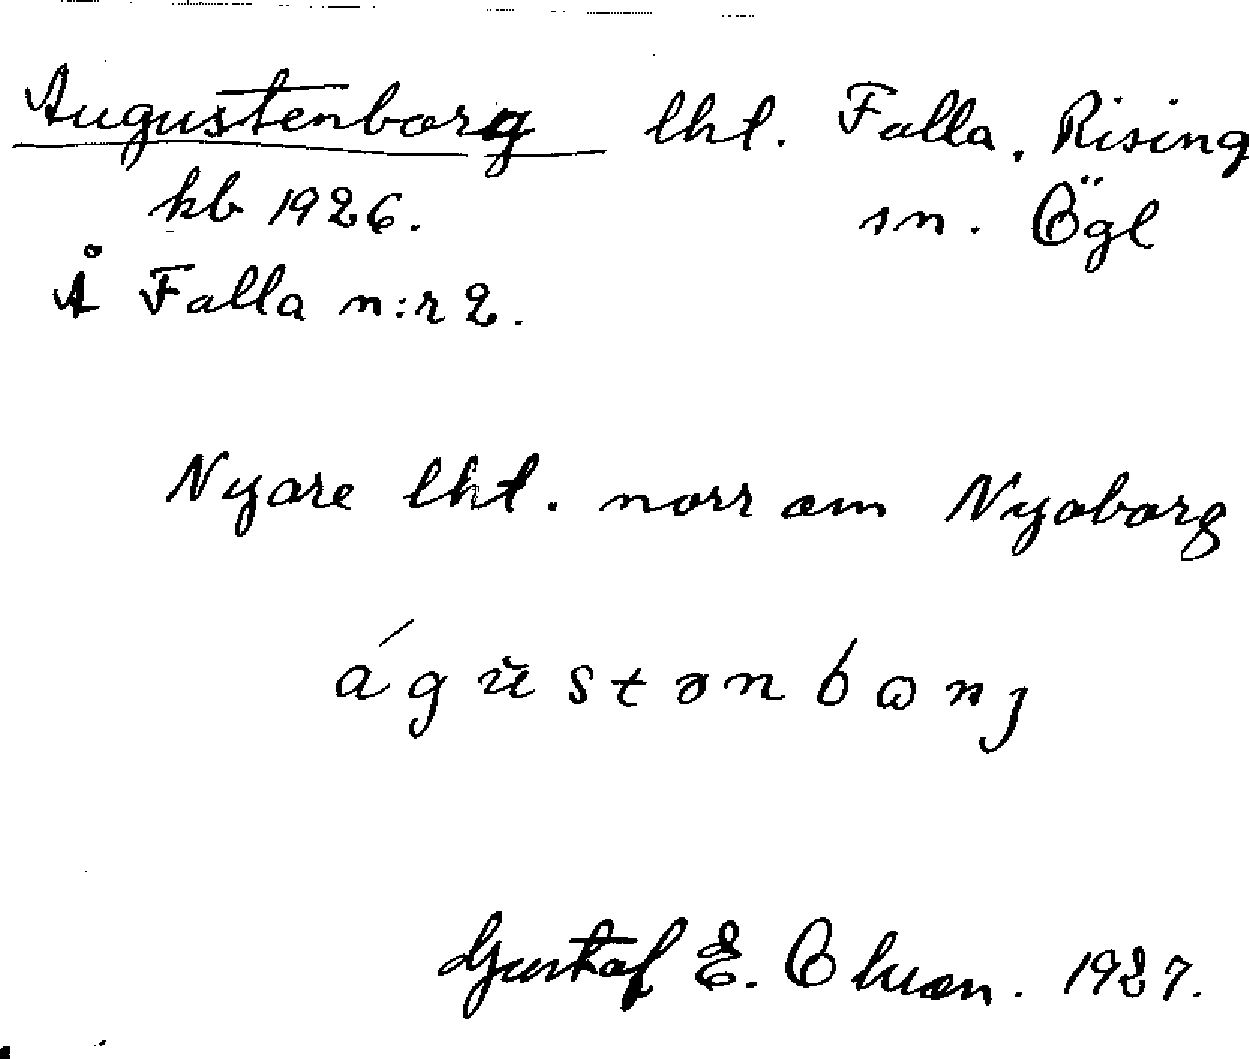 Augustenborg lht. Falla, Rising
kb 1926. sn. Ögl
Å Falla n:r 2.
Nyare lht. norr om Nyaborg
águ̇stənbɷrj
Gustaf E. Olsson. 1927.